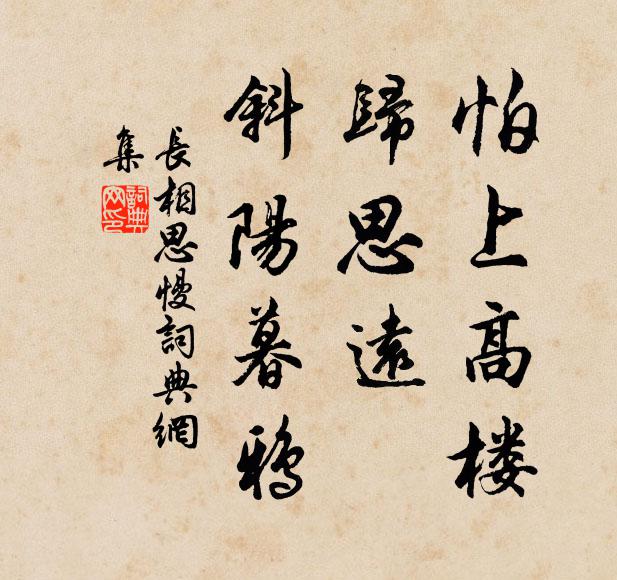 怕上高楼
歸思遠
斜陽暮鴉
長相思慢詞典網
集
詞典網印